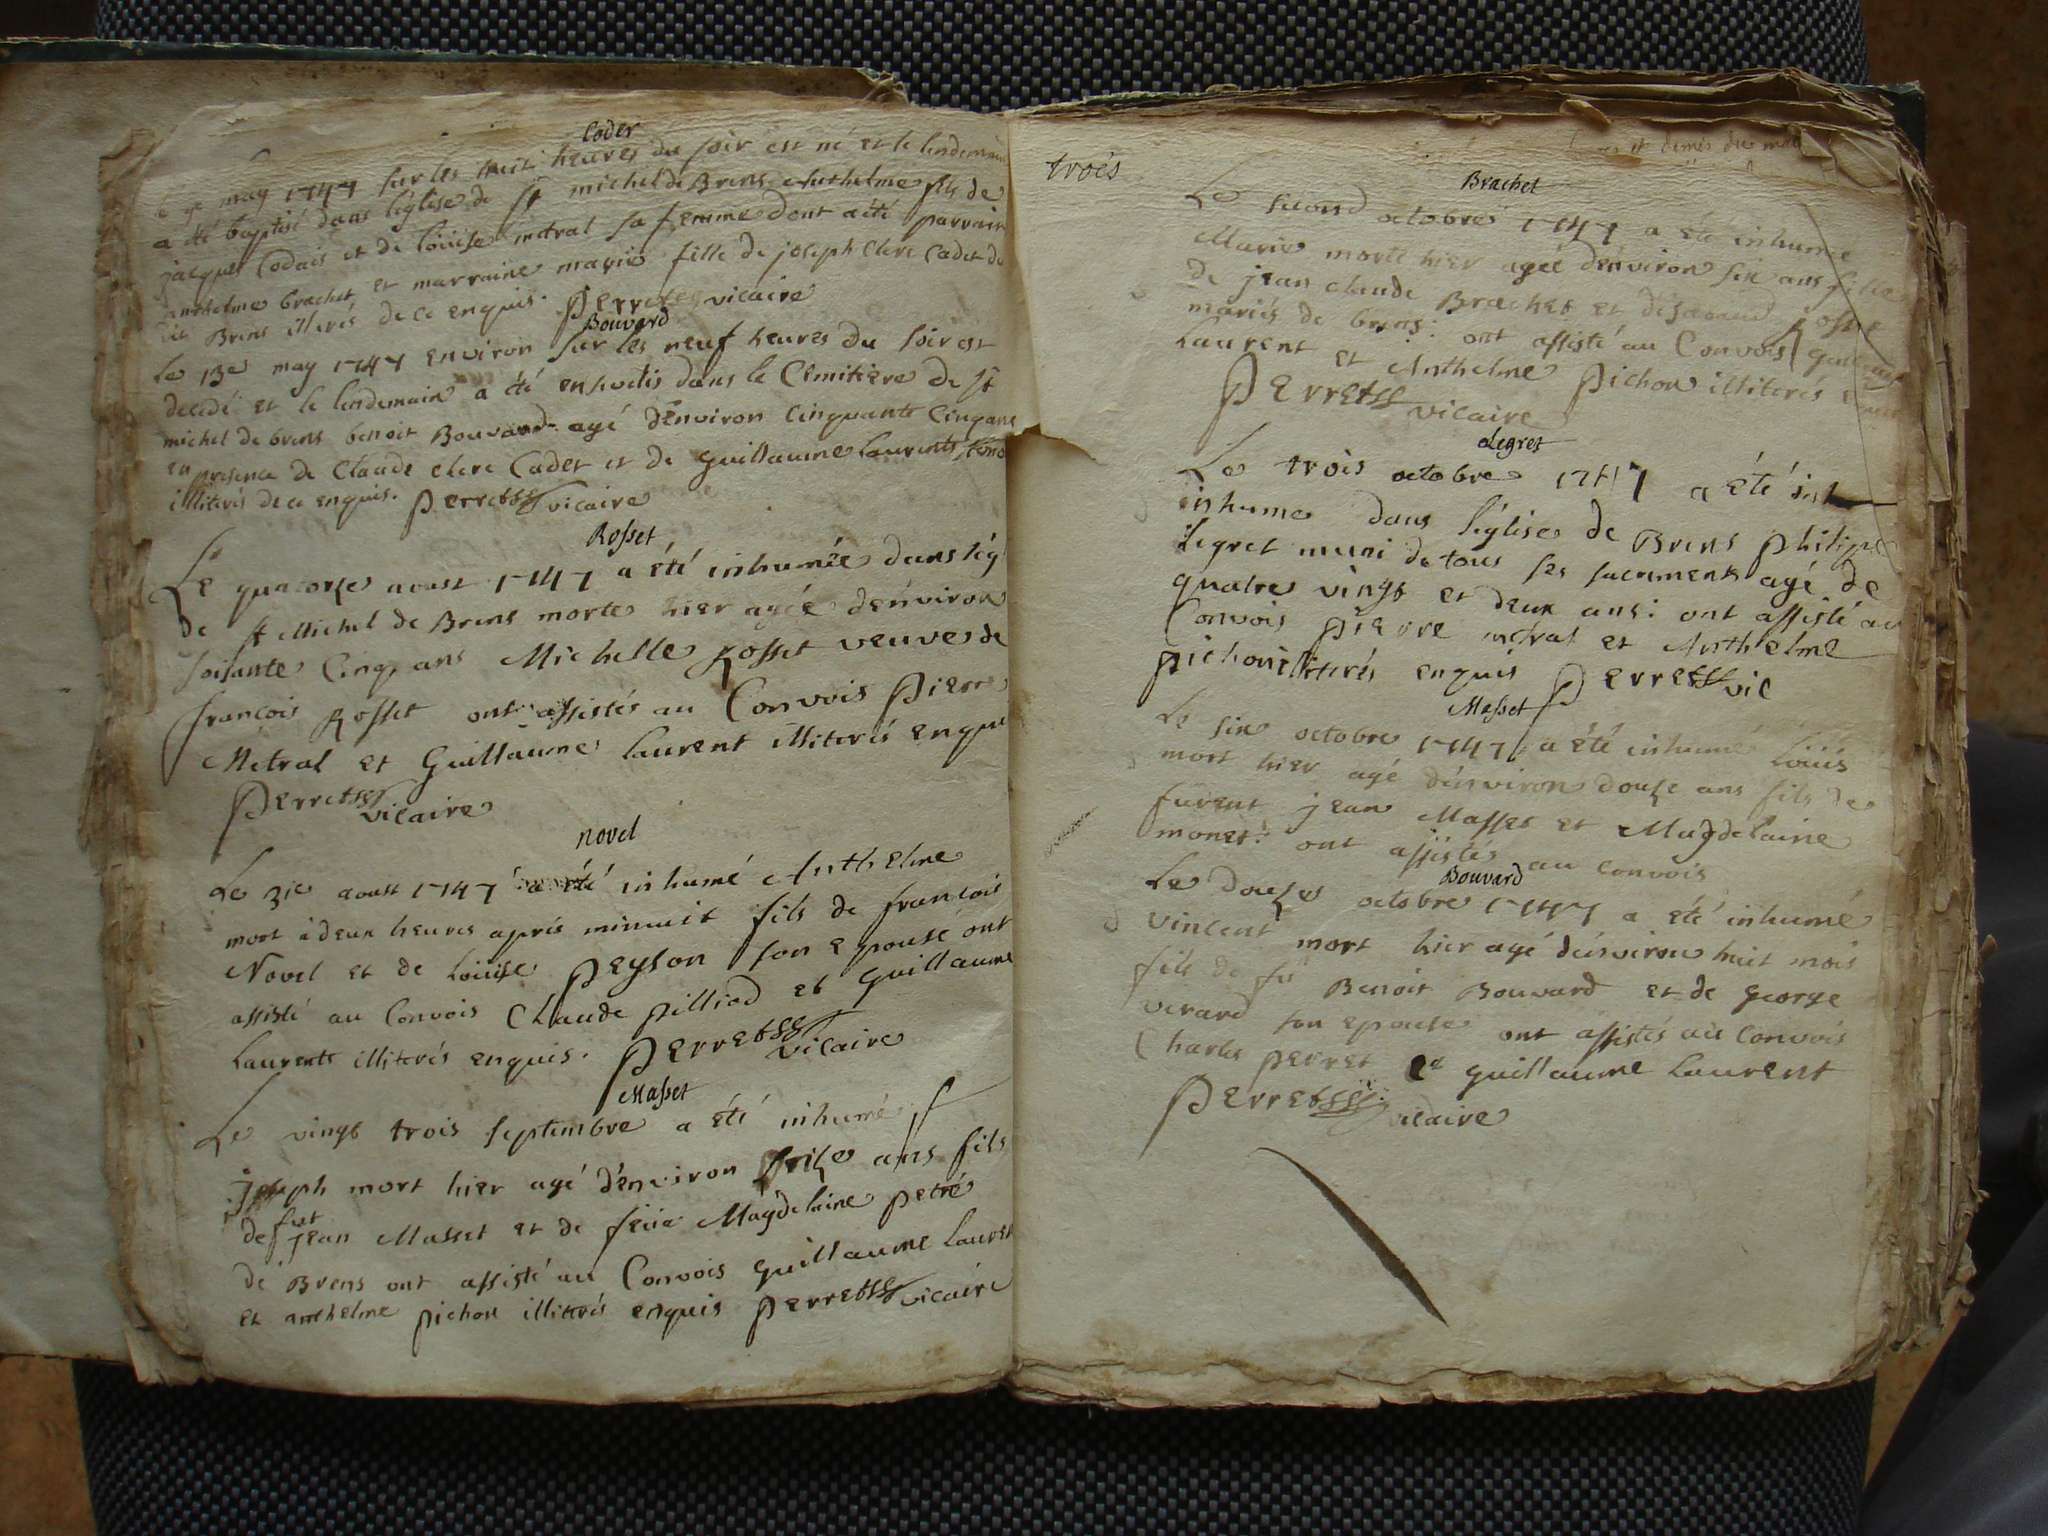 Coder
may 1747 sur les huit heures du soir est né et le lendemain
a été baptisé dans léglise de st michel de Brens Anthelme fils de
jacques Codais et de Loüise metral sa femme dont a été parrain
anthelme brachet et marraine marie fille de joseph Clerc Cadet de
dit Brens illiterés de ce enquis. Perret vicaire
Bouvard
Le 13e may 1747 environ sur les neuf heures du soir est
decedé et le lendemain a été ensevelis dans le Cemitiere de st
michel de brens benoit Bouvard agé denviron Cinquante Cinq ans
en presence de Claude clerc Cadet et de guillaume Laurents
illiterés de ce enquis. Perret vicaire
Rosset
Le quatorze aoust 1747 a été inhumée dans lég
de st Michel de Brens morte hier agée denviron
soisante Cinq ans Michelle Rosset veuve de
françois Rosset ont assistés au Convois Pierre
Metral et Guillaume Laurent illiterés enqui
Perret vicaire
novel
Le 31e aoust 1747 a été inhumé Anthelme
mort à deux heures aprés minuit fils de françois
Novel et de Loüise Peyson son epouse ont
assisté au Convois Claude pilliod et guillaume
Laurents illiterés enquis. Perret vicaire
Masset
Le vingt trois septembre a été inhumé
joseph mort hier agé denviron ans fils
de fut jean Masset et de feüe Magdelaine petré
de Brens ont assisté au Convois guillaume Laurent
et anthelme pichon illiterés enquis Perret vicaire
trois
Brachet
Le second octobre 1747 a été inhumée
Marie morte hier agée denviron six ans fille
de jean claude Brachet et
mariés de brens: ont assisté au Convois
Laurent et Anthelme Pichon illiterés
Perret vicaire
Legret
Le trois octobre 1747 a été
inhume dans léglise de Brens philipe
Legret muni de tous ses sacrements agé de
quatre vingt et deux ans: ont assisté au
Convois pierre metral et Anthelme
pichon illiterés enquis Perret vic
Masset
Le six octobre 1747 a été inhumé Loüis
mort hier agé denviron douze ans fils de
furent jean Masset et Magdelaine
monet: ont assistés au convois
Bouvard
Le douze octobre 1747 a été inhumé
vincent mort hier agé denviron huit mois
fils de fu Benoit Bouvard et de george
verard son epouse ont assistés au Convois
Charles perret et guillaume Laurent
Perret vicaire